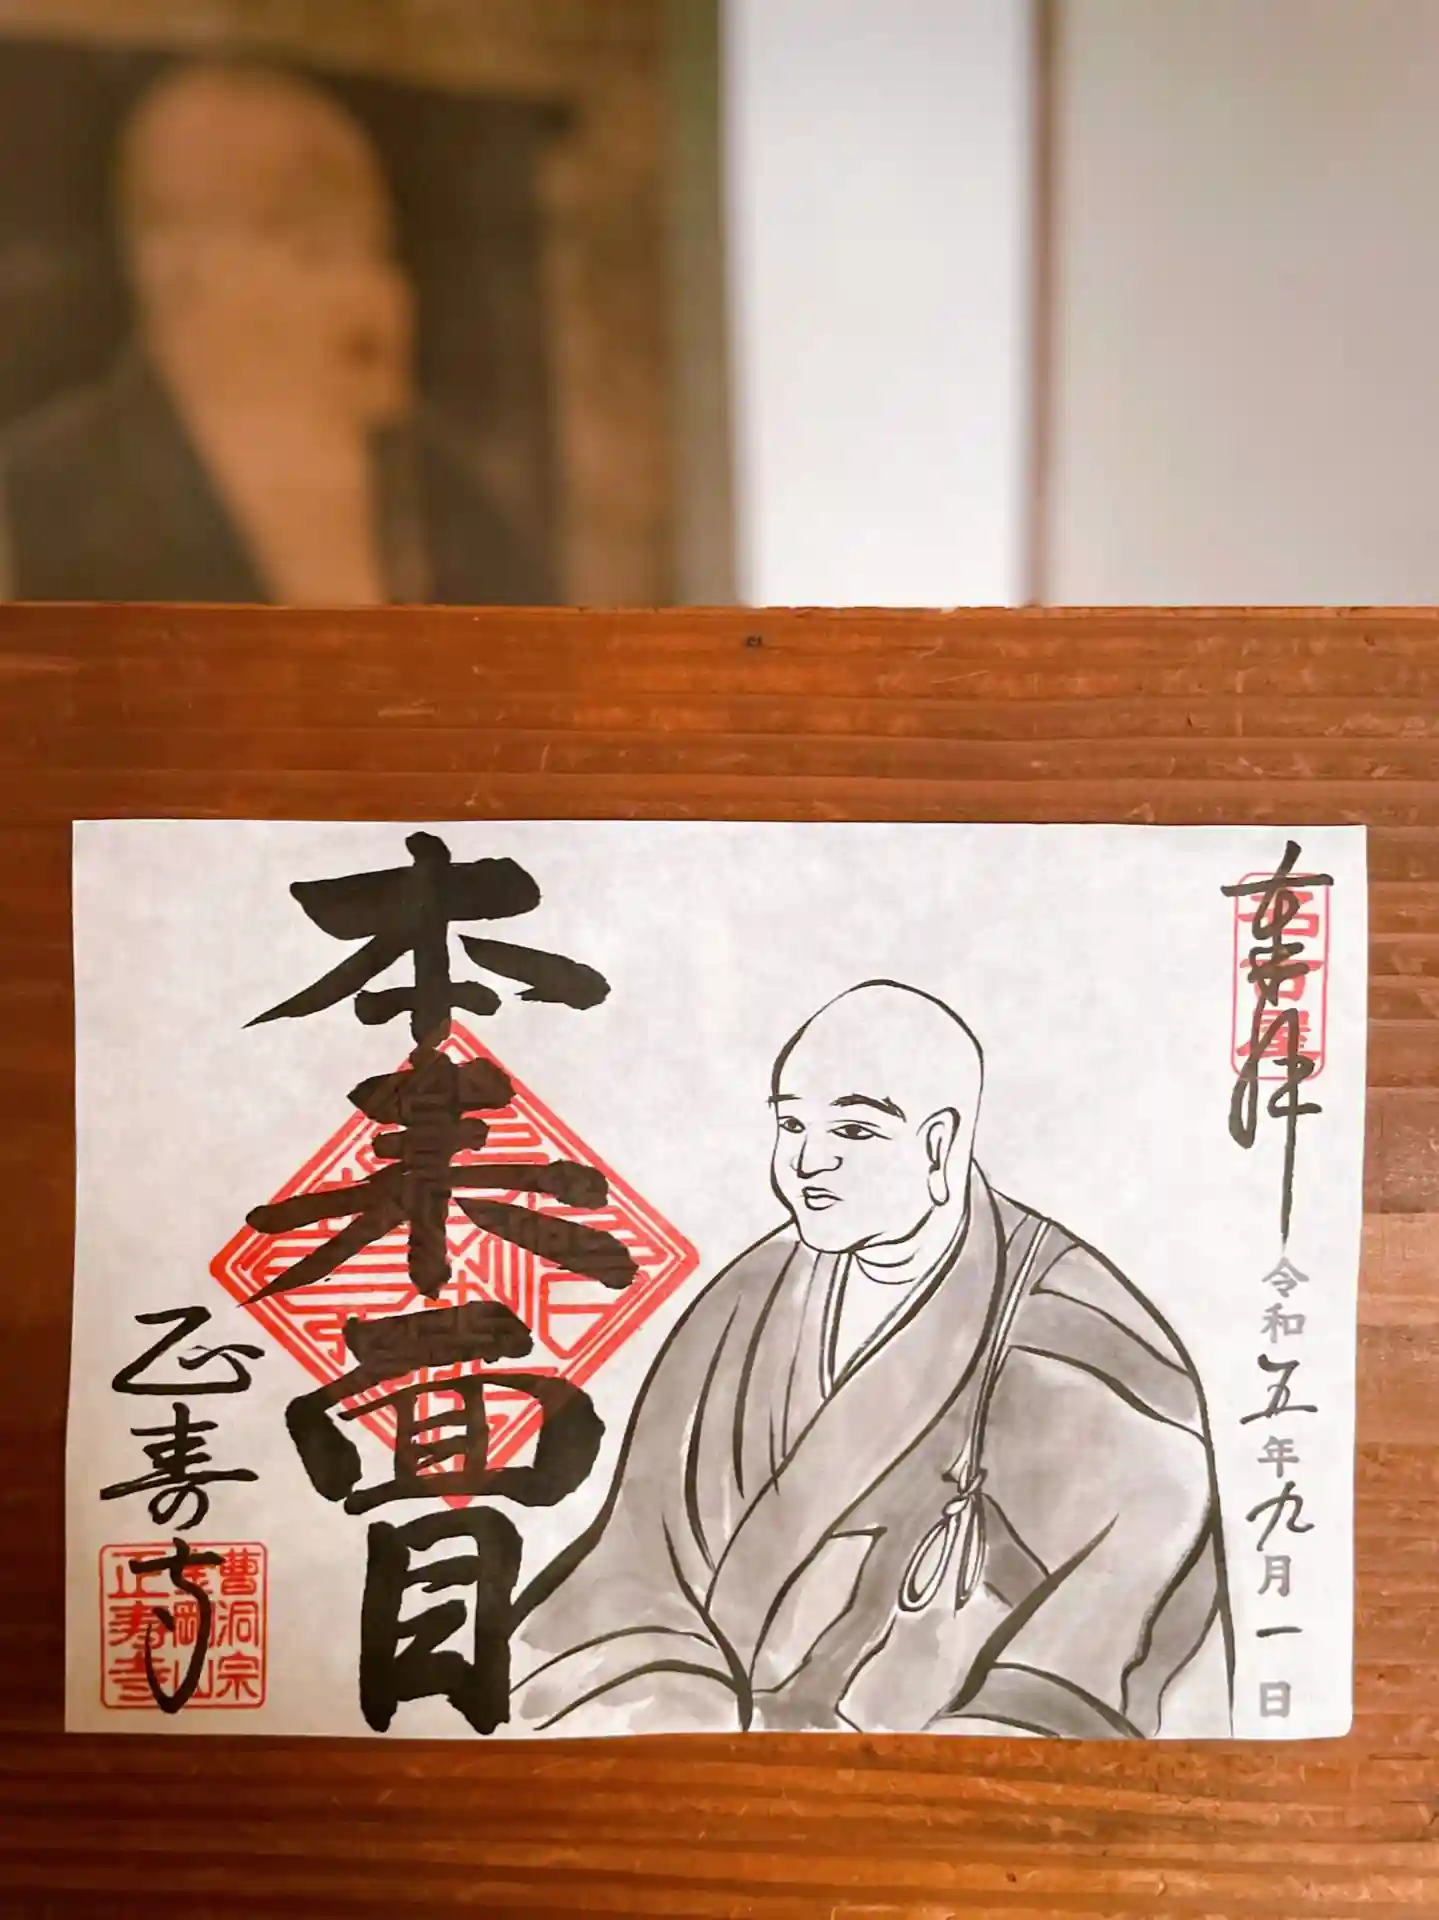 奉拝
名古屋
令和五年九月一日
本来面目
正寿寺
曹洞宗
金剛山
正寿寺